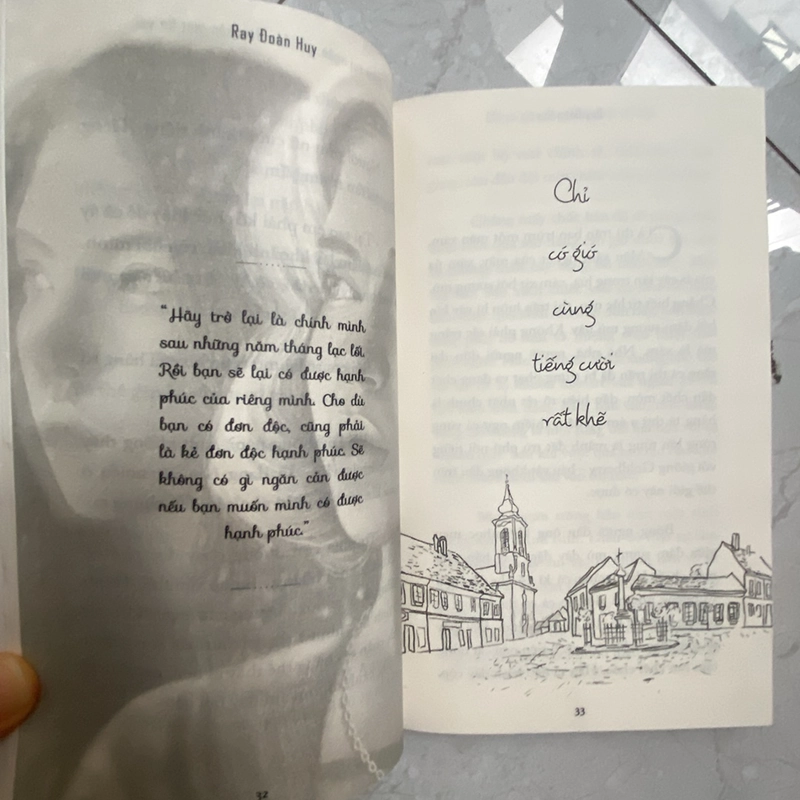 Ray Đoàn Huy
“Hãy trở lại là chính mình
sau những năm tháng lạc lối.
Rồi bạn sẽ lại có được hạnh
phúc của riêng mình. Cho dù
bạn có đơn độc, cũng phải
là kẻ đơn độc hạnh phúc. Sẽ
không có gì ngăn cản được
nếu bạn muốn mình có được
hạnh phúc.”
32
Chỉ
có gió
cùng
tiếng cười
rất khẽ
33